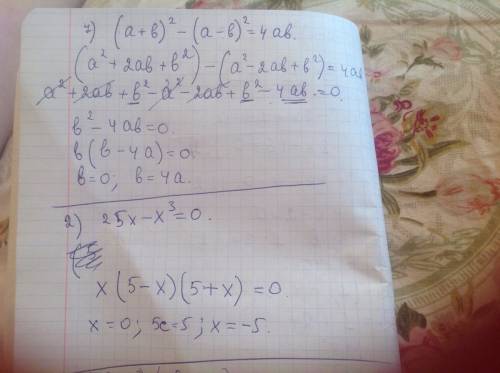 7) (a+b)² − (a−b)² = 4ab.
(a² + 2ab + b²) − (a² − 2ab + b²) = 4ab
a² + 2ab + b² − a² − 2ab + b² − 4ab = 0.
b² − 4ab = 0.
b(b − 4a) = 0.
b = 0; b = 4a.
2) 25x − x³ = 0.
x(5 − x)(5 + x) = 0
x = 0; x = 5; x = −5.